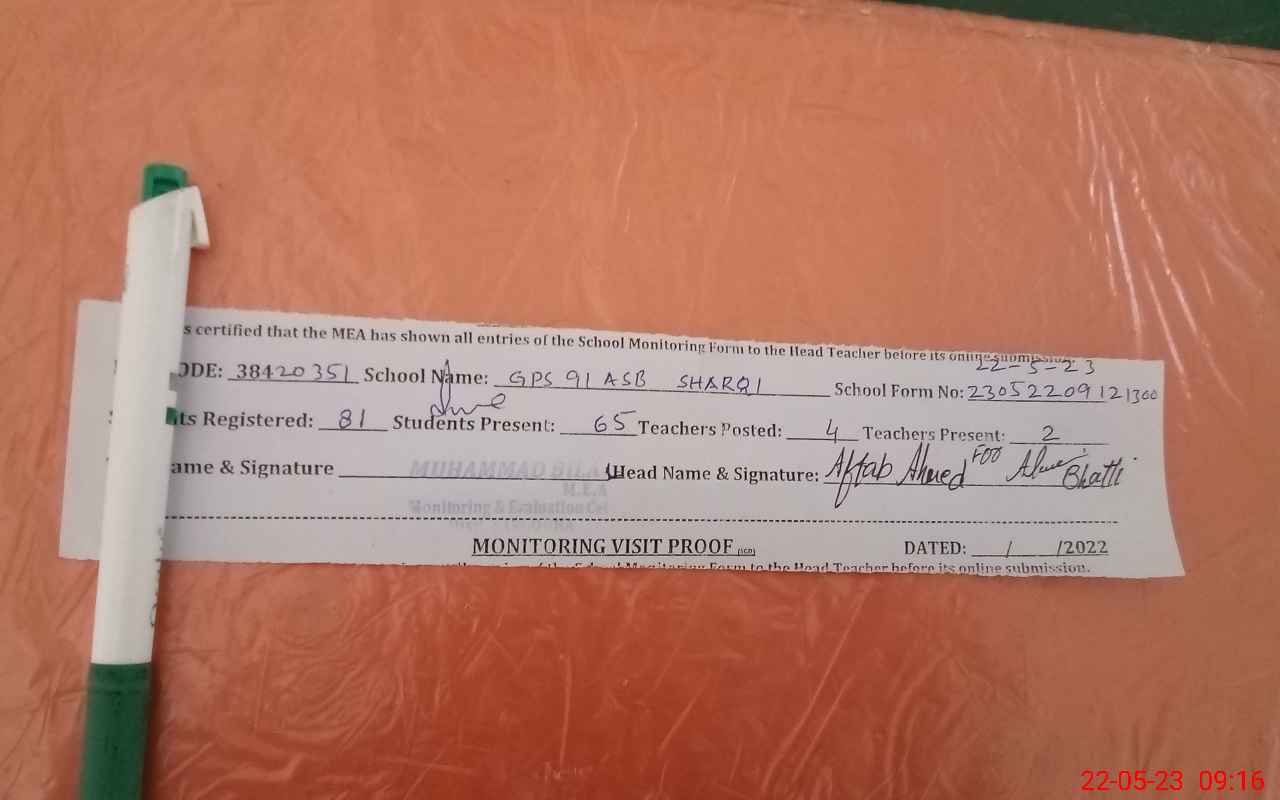 s certified that the MEA has shown all entries of the School Monitoring Form to the Head Teacher before its online submission.
22-5-23
ODE: 38420351 School Name: GPS 91 ASB SHARQI School Form No: 23052209121300
ts Registered: 81 Students Present: 65 Teachers Posted: 4 Teachers Present: 2
ame & Signature MUHAMMAD BILA Head Name & Signature: Aftab Ahmed For Bhatti
M.E.A
Monitoring & Evaluation Cel
MONITORING VISIT PROOF DATED: / /2022
Form to the Head Teacher before its online submission.
22-05-23 09:16